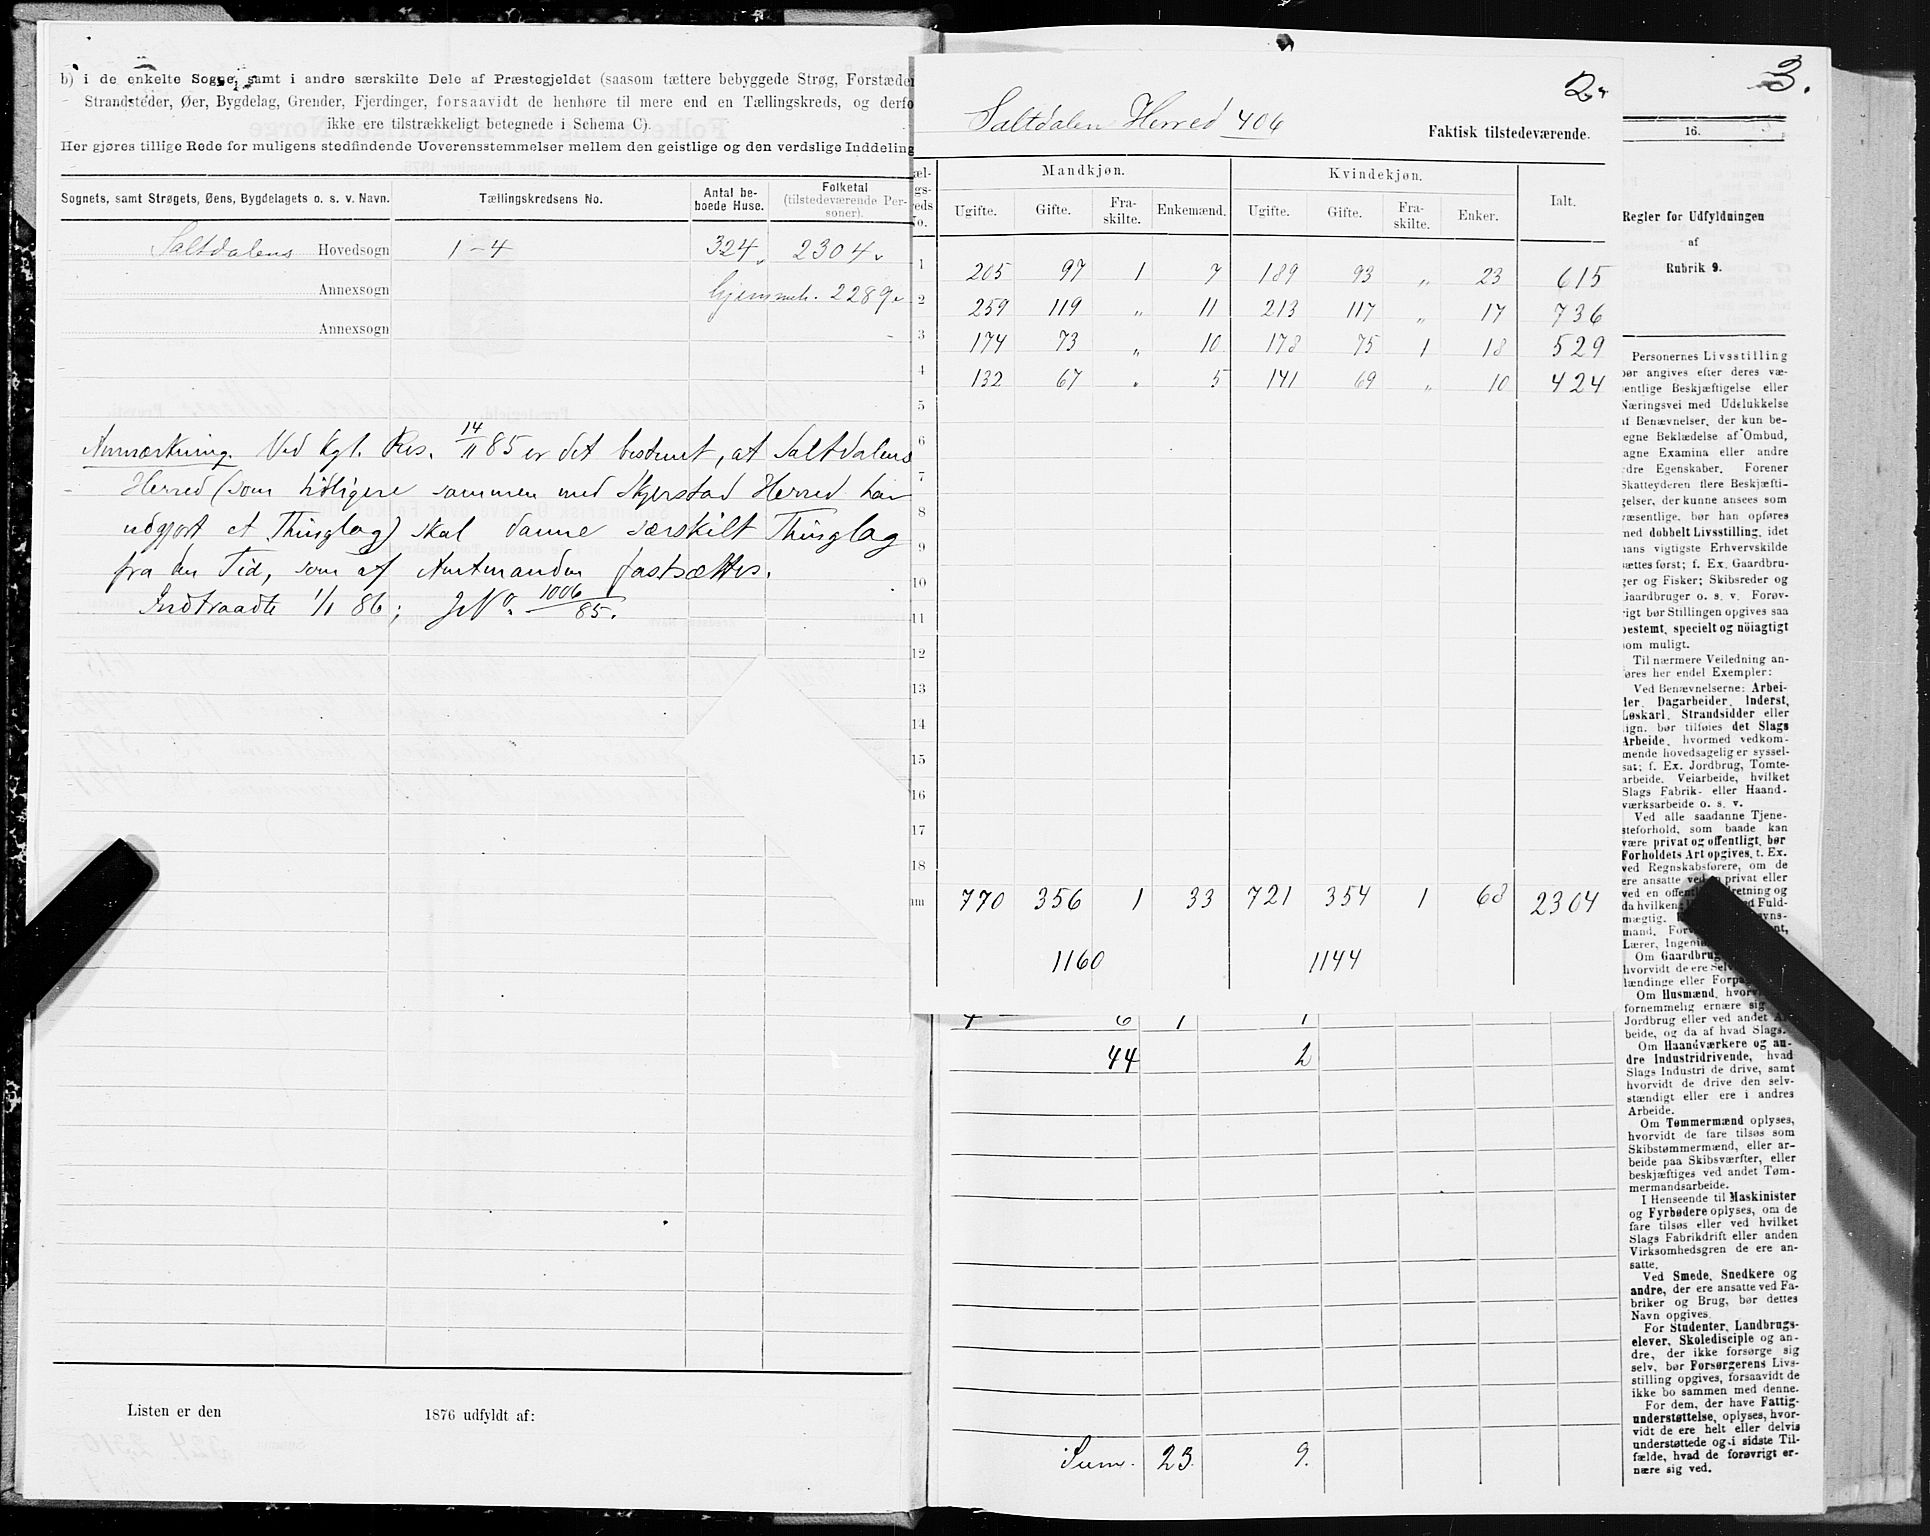 b) i de enkelte Sogne, samt i andre særskilte Dele af Præstegjeldet (saasom tættere bebyggede Strøg, Forstæder
Strandsteder, Øer, Bygdelag, Grender, Fjerdinger, forsaavidt de henhøre til mere end en Tællingskreds, og derfo
ikke ere tilstrækkeligt betegnede i Schema C).
Her gjøres tillige Rede for muligens stedfindende Uoverensstemmelser mellem den geistlige og den verdslige Inddeling
Sognets, samt Strøgets, Øens, Bygdelagets o. s. v. Navn. Tællingskredsens No. Antal be- Folketal
boede Huse. (tilstedeværende Per-
soner).
Saltdalens Hovedsogn 1-4 324 2304
Annexsogn hjemmeh. 2289
Annexsogn
Anmærkning. Ved kgl. Res. 14/11 85 er det bestemt, at Saltdalens
Herred (som tidligere sammen med Skjerstad Herred har
udgjort et Thinglag) skal danne særskilt Thinglag
fra den Tid, som af Amtmanden fastsættes.
Indtraadte 1/1 86; JNo. 1006/85.
Listen er den 1876 udfyldt af:
2.
Saltdalen Herred 406
Faktisk tilstedeværende.
Mandkjøn. Kvindekjøn. Ialt.
Ugifte. Gifte. Fra-skilte. Enkemænd. Ugifte. Gifte. Fra-skilte. Enker.
1 205 97 1 7 189 93 „ 23 615
2 259 119 „ 11 213 117 „ 17 736
3 174 73 „ 10 178 75 1 18 529
4 132 67 „ 5 141 69 „ 10 424
5
6
7
8
9
10
11
12
13
14
15
16
17
18
770 356 1 33 721 354 1 68 2304
1160 1144
4 6 1 1
44 2
Sum. 23. 9.
3.
16.
Regler for Udfyldningen
af
Rubrik 9.
Personernes Livsstilling
bør angives efter deres væ-
sentlige Beskjæftigelse eller
Næringsvei med Udelukkelse
af Benævnelser, der kun be-
egne Beklædelse af Ombud,
agne Examina eller andre
dre Egenskaber. Forener
Skatteyderen flere Beskjæfti-
gelser, der kunne ansees som
væsentlige, bør han opføres
med dobbelt Livsstilling, idet
hans vigtigste Erhvervskilde
sættes først; f. Ex. Gaardbru-
ger og Fisker; Skibsreder og
Gaardbruger o. s. v. Forøv-
rigt bør Stillingen opgives saa
bestemt, specielt og nöiagtigt
som muligt.
Til nærmere Veiledning an-
føres her endel Exempler:
Ved Benævnelserne: Arbei-
der, Dagarbeider, Inderst,
Løskarl, Strandsidder eller
lign. bør tilføies det Slags
Arbeide, hvormed vedkom-
mende hovedsagelig er syssel-
sat; f. Ex. Jordbrug, Tomte-
arbeide, Veiarbeide, hvilket
Slags Fabrik- eller Haand-
værksarbeide o. s. v.
Ved alle saadanne Tjene-
steforhold, som baade kan
være privat og offentligt, bør
Forholdets Art opgives, t. Ex.
ved Regnskabsførere, om de
ere ansatte ved privat eller
ved en retning og
da hvilken; Fuld-
mægtig.
mand,
Lærer,
Om Gaardbrug
hvorvidt de ere
lændinge eller
Om Husmænd,
fornemmelig ernære sig
Jordbrug eller ved andet Ar-
beide, og da af hvad Slags.
Om Haandværkere og an-
dre Industridrivende, hvad
Slags Industri de drive, samt
hvorvidt de drive den selv-
stændigt eller ere i andres
Arbeide.
Om Tømmermænd oplyses,
hvorvidt de fare tilsøs som
Skibstømmermænd, eller ar-
beide paa Skibsværfter, eller
beskjæftiges ved andet Tøm-
mermandsarbeide.
I Henseende til Maskinister
og Fyrbødere oplyses, om de
fare tilsøs eller ved hvilket
Slags Fabrikdrift eller anden
Virksomhedsgren de ere an-
satte.
Ved Smede, Snedkere og
andre, der ere ansatte ved Fa-
briker og Brug, bør dettes
Navn opgives.
For Studenter, Landbrugs-
elever, Skoledisciple og an-
dre, der ikke forsørge sig
selv, bør Forsørgerens Livs-
stilling opgives, forsaavidt de
ikke bo sammen med denne.
For dem, der have Fattig-
understøttelse, oplyses, hvor-
vidt de ere helt eller delvis
understøttede og i sidste Til-
fælde, hvad de forøvrigt er-
nære sig ved.